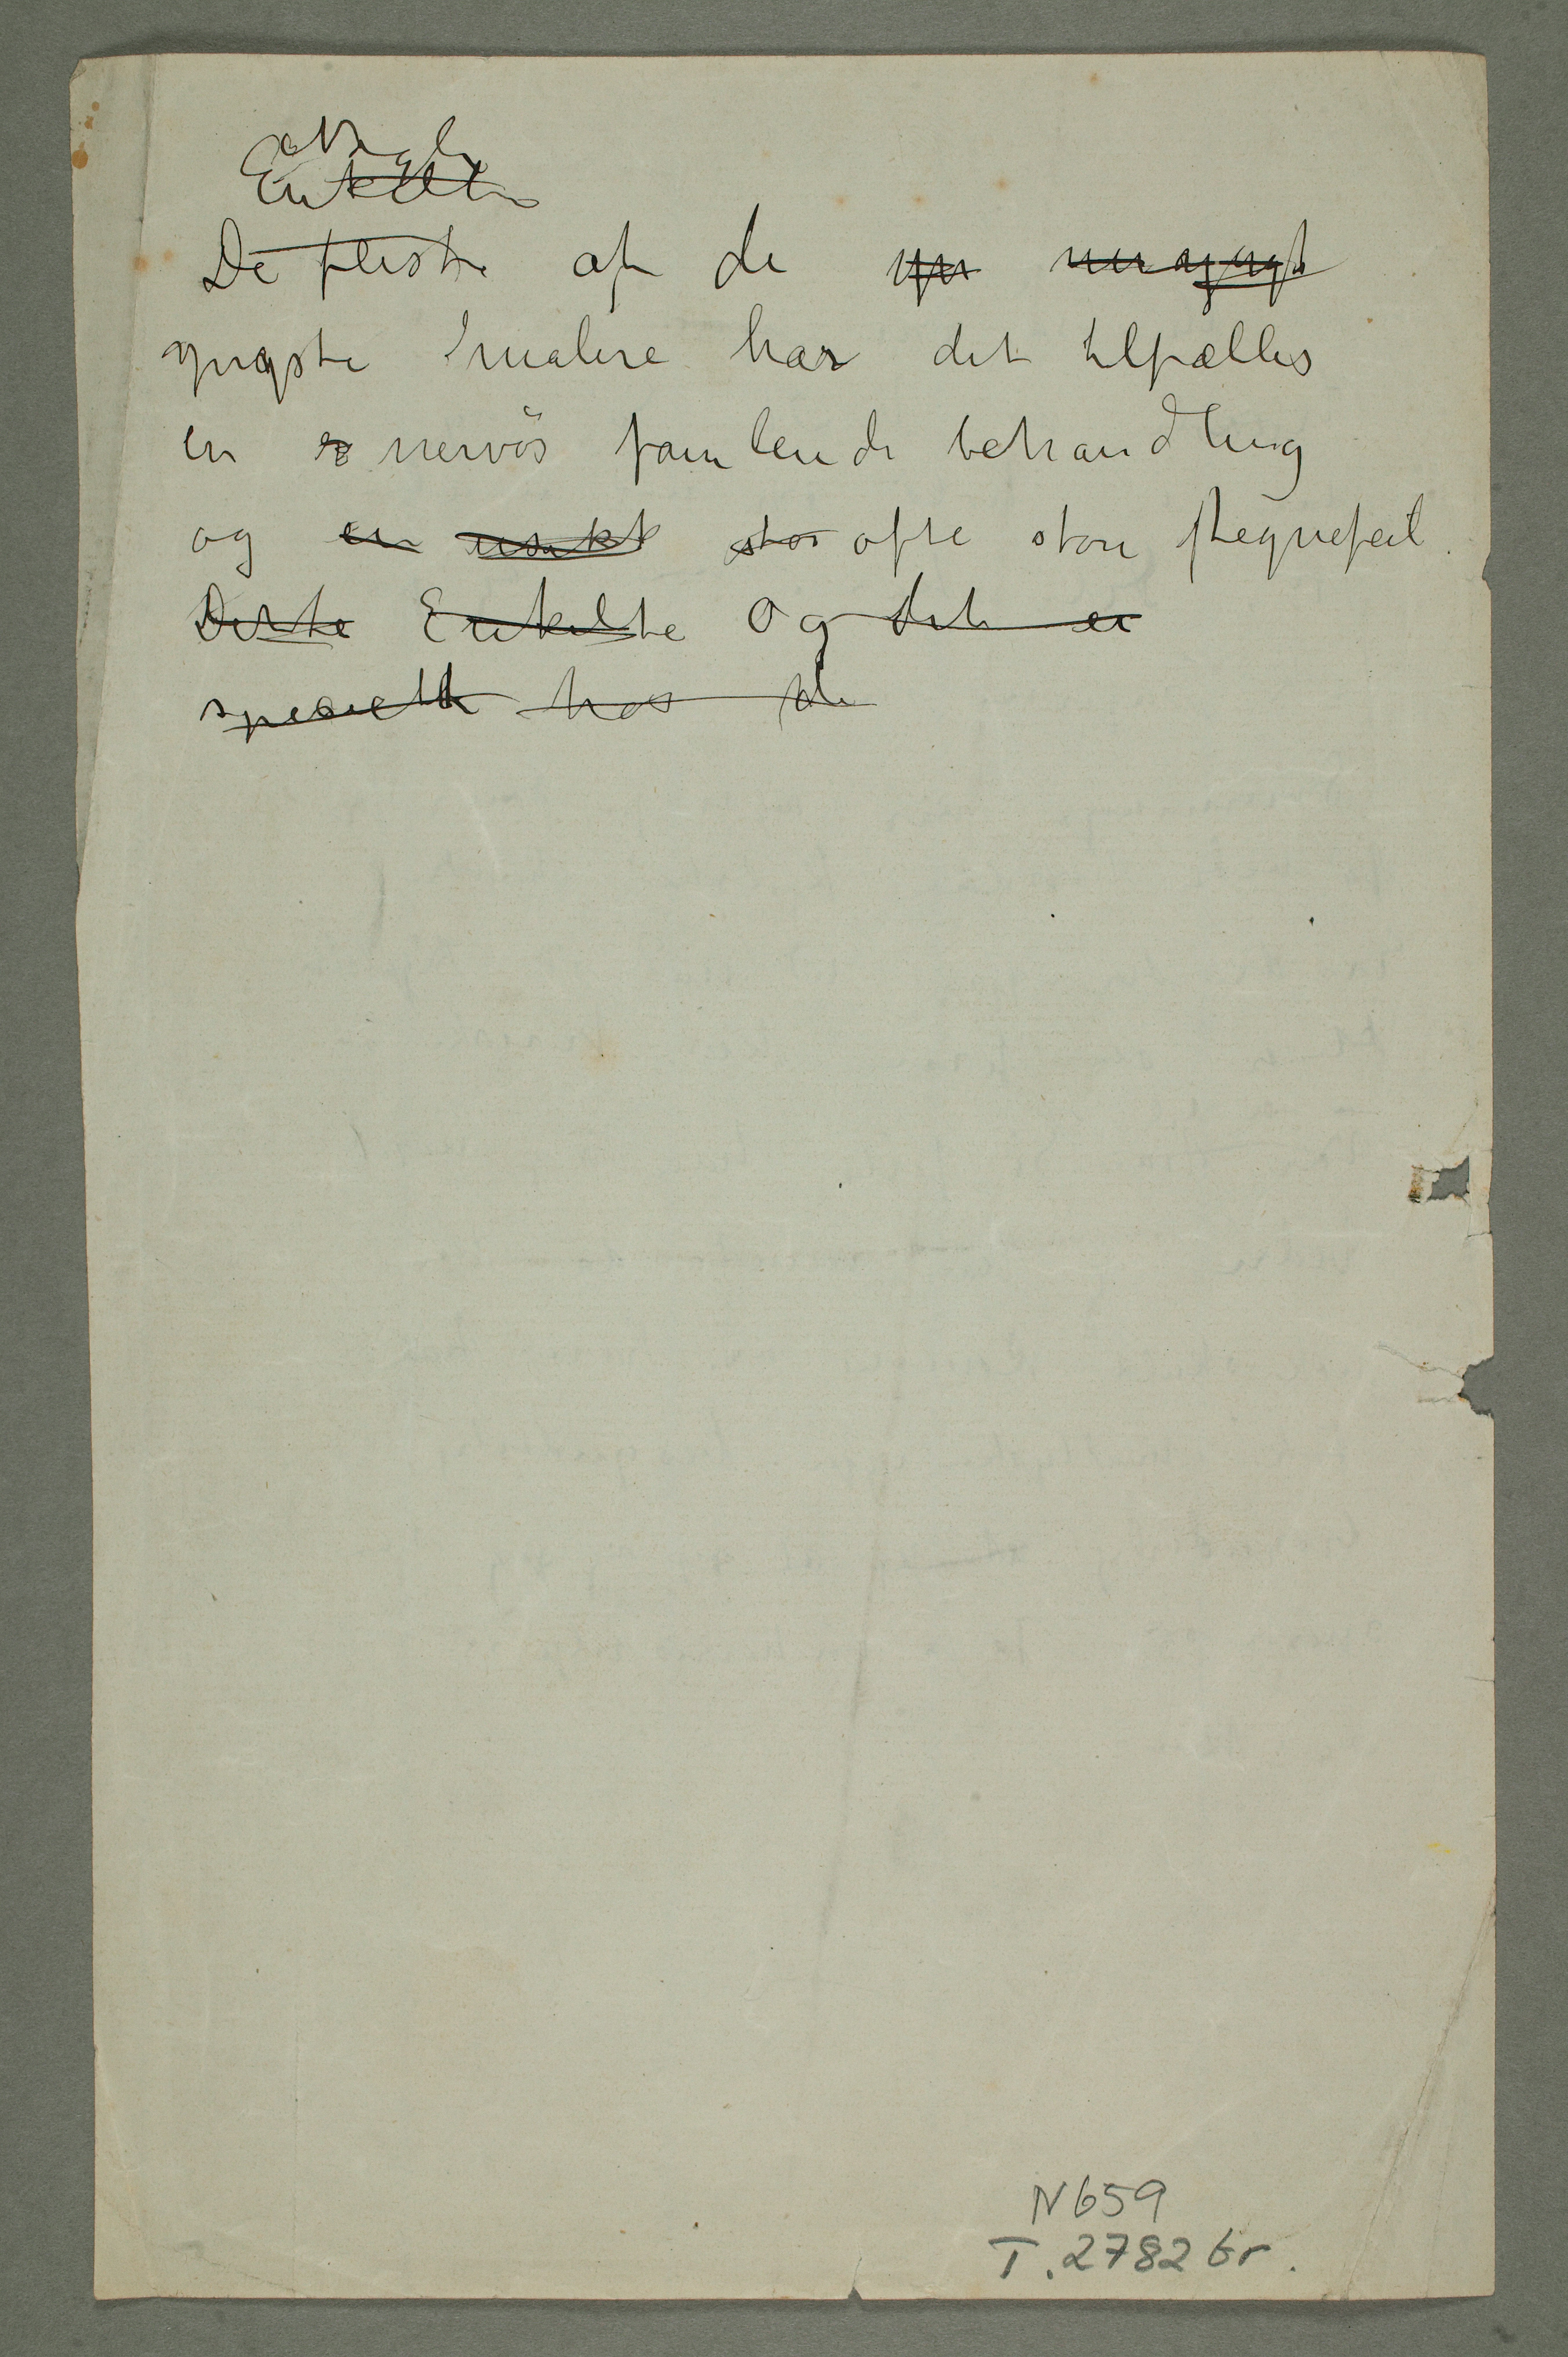 Nogle
Enkelte
De fleste af de un
yngste malere har det tilfælles
en nervös famlende behandling
og en usikk stor ofte store tegnefeil.
Dette Enkelte Og det er
specielt hos de
N 659
T. 2782 br.